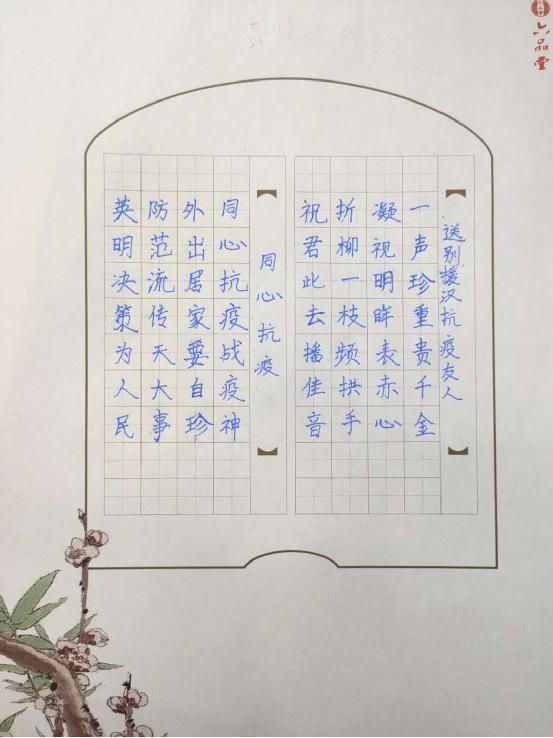 六品堂
送别援汉抗疫友人
一声珍重贵千金
凝视明眸表赤心
折柳一枝频拱手
祝君此去播佳音
同心抗疫
同心抗疫战疫神
外出居家要自珍
防范流传天大事
英明决策为人民